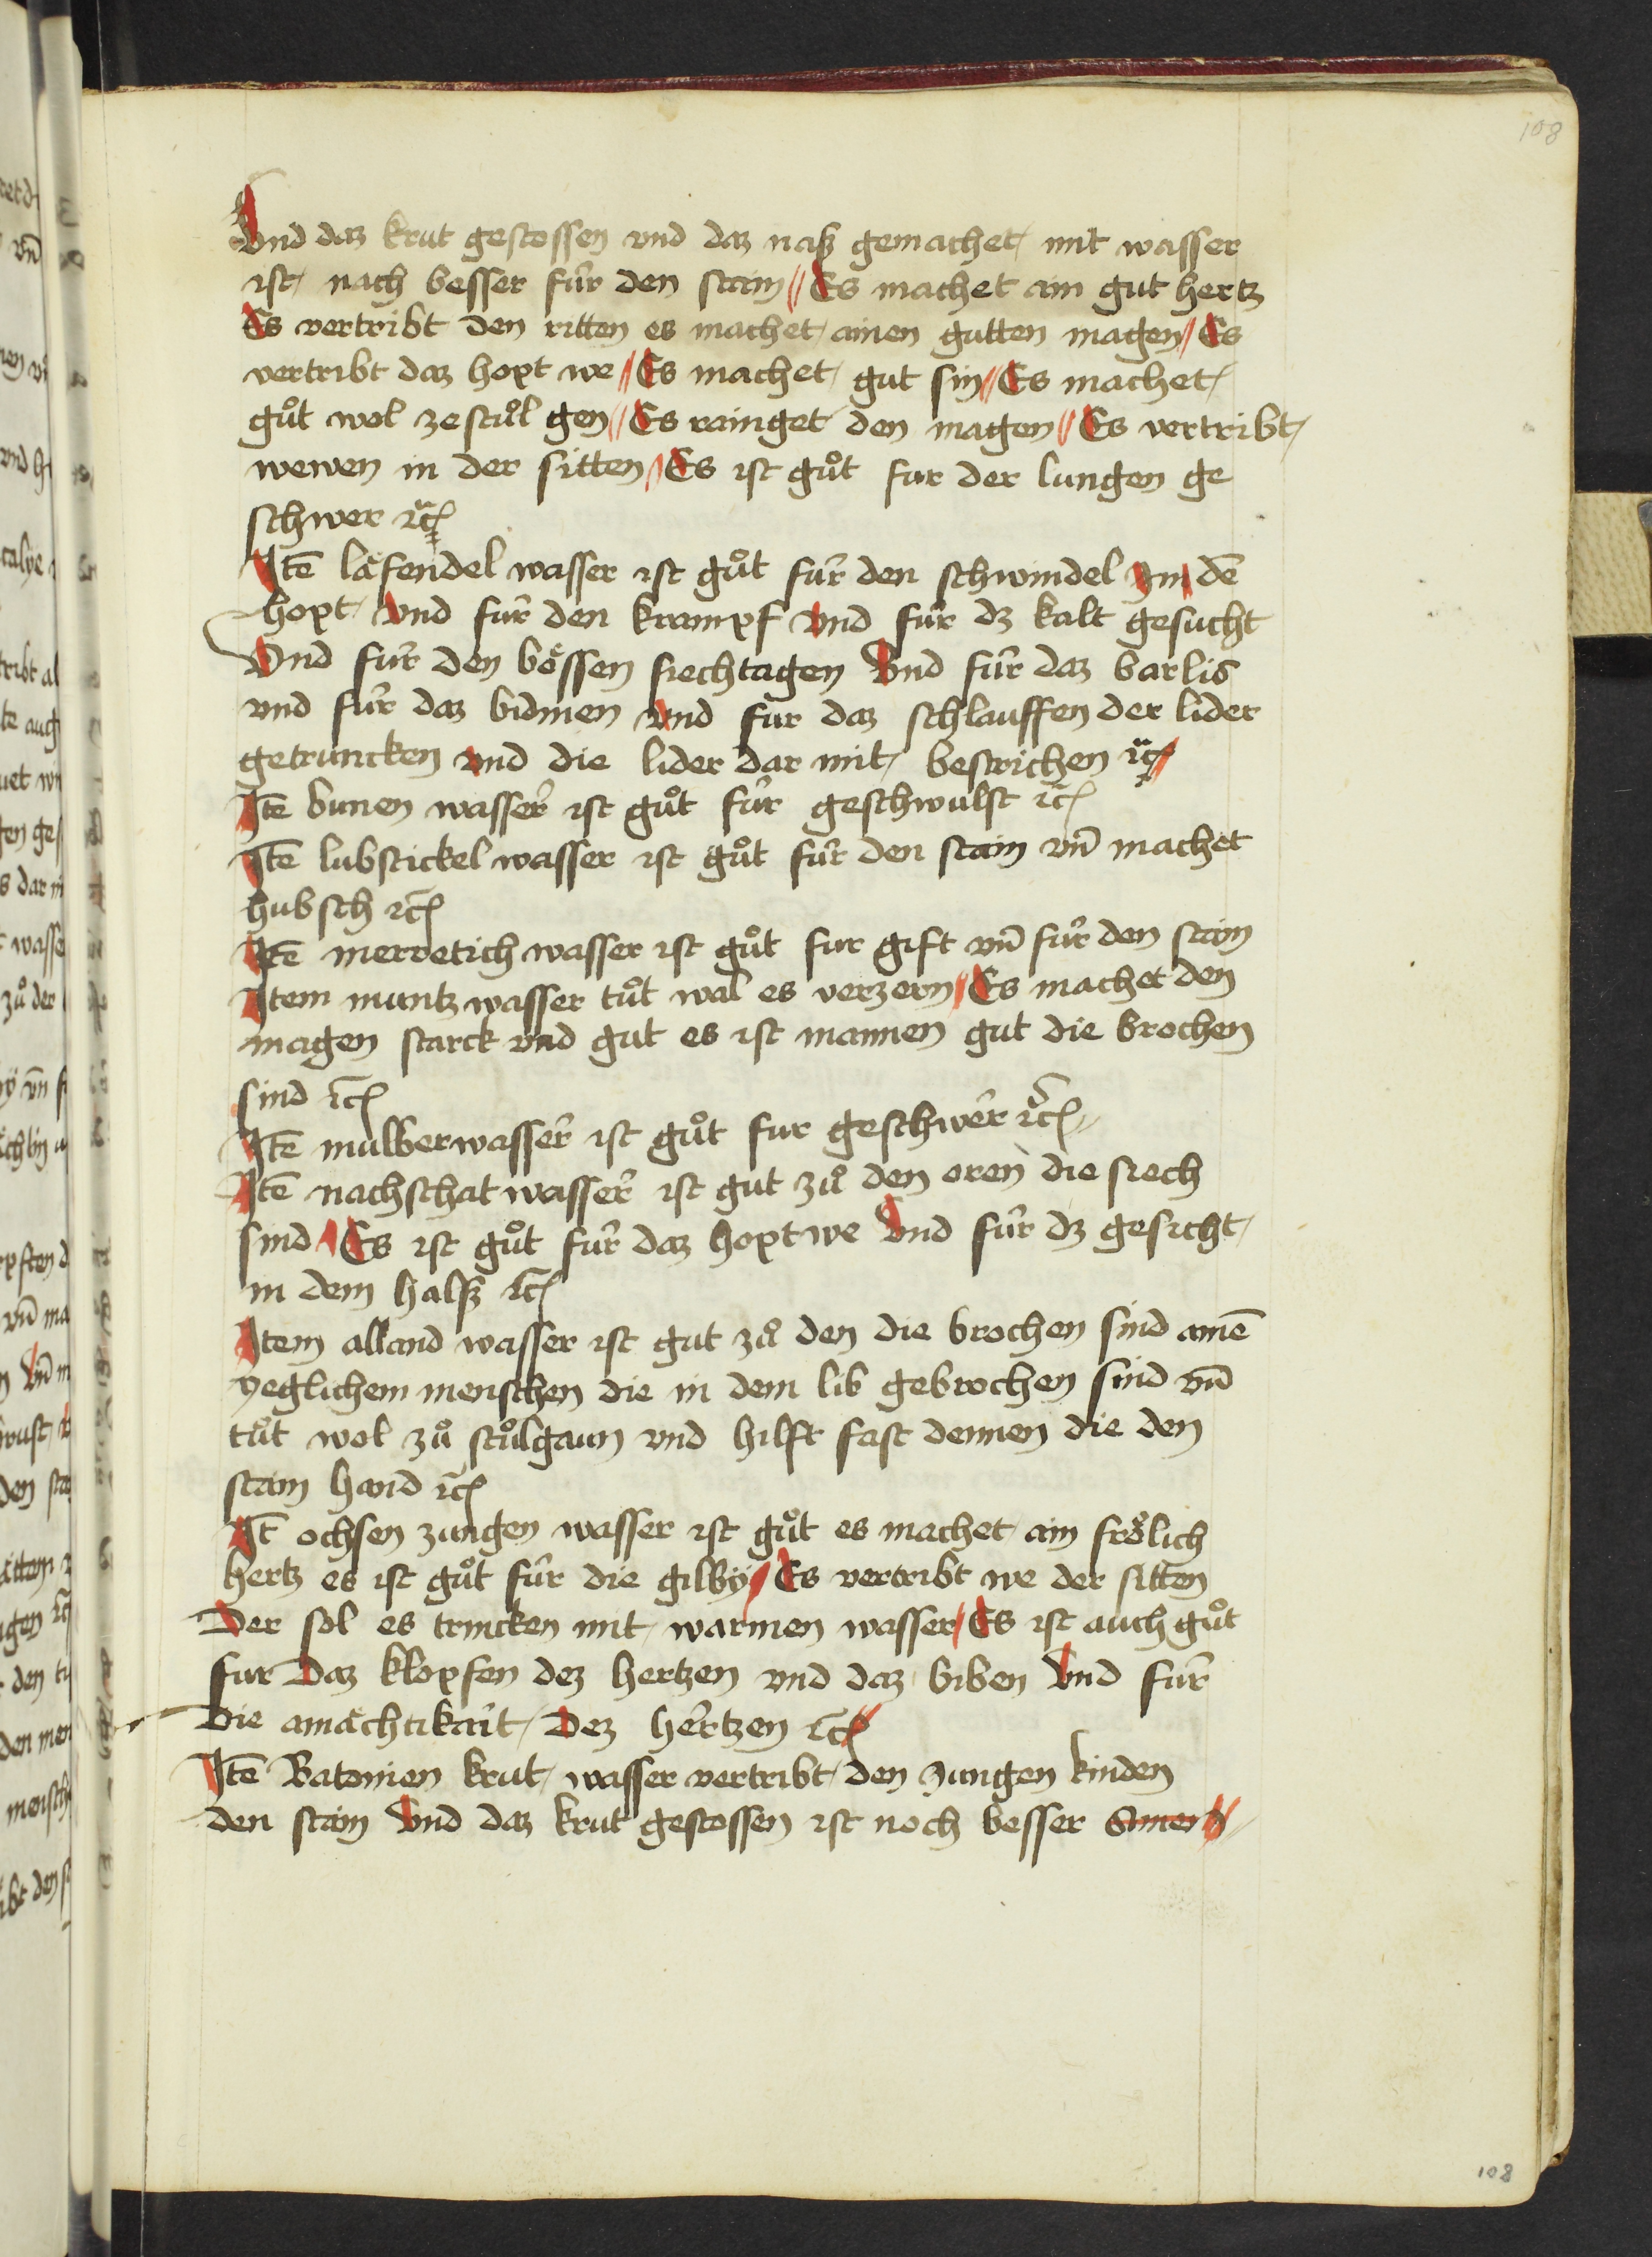 108
Vnd daz krut gestossen vnd daz naß gemachet mit wasser
ist nach besser für den stain // Es machet ain gut hertz
Es vertribt den ritten es machet ainen gutten magen // Es
vertribt daz hopt we // Es machet gut sin // Es machet
gůt wol ze stůl gen // Es rainget den magen // Es vertribt
wewen in der sitten / Es ist gůt fur der lungen ge
schwer ⁊c̃
Itē läfendel wasser ist gůt für den schwindel Jn dē
hopt Vnd für den krampf Vnd für dz kalt gesucht
Vnd für den bössen siechtagen Vnd für daz barlis
vnd für daz bidmen vnd für daz schlauffen der lider
getruncken vnd die lider dar mit bestrichen ⁊c̃
Itē bunen wasser ist gůt für geschwulst ⁊c̃
Itē lubstickel wasser ist gůt für den stain vn̄ machet
hubsch ⁊c̃
Itē merretich wasser ist gůt fur gift vn̄ für den stain
Item muntz wasser tůt wal es verzern // Es machet den
magen starck vnd gut es ist mannen gut die brochen
sind ⁊c̃
Itē mulber wasser ist gůt fur geschwer ⁊c̃
Itē nachschat wasser ist gut zů den oren die siech
sind / Es ist gůt für daz hopt we Vnd für dz gesicht
in dem halß ⁊c̃
Item alland wasser ist gut zů den die brochen sind ainē
yeglichem menschen die in dem lib gebrochen sind vn̄
tůt wol zů stůlgaun vnd hilft fast dennen die den
stain hand ⁊c̃
It̄ ochsen zungen wasser ist gůt es machet ain frölich
hertz es ist gůt für die gilby / Es vertribt we der sitten
Der sol es trincken mit warmen wasser / Es ist auch gůt
fur Daz klopfen dez hertzen vnd daz biben Vnd für
Die amächtikait Dez hertzen ⁊c̃
Itē Batonien krut wasser vertribt den Jungen kinden
den stain Vnd daz krut gestossen ist noch besser
108